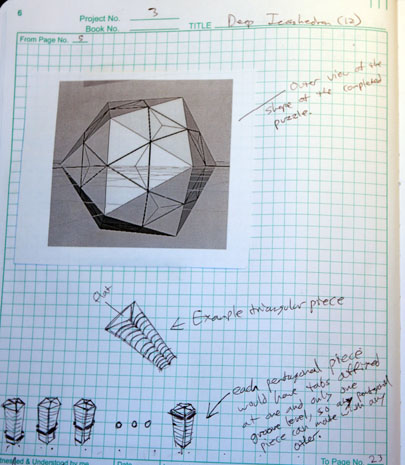 6
Project No. 3
Book No.
TITLE Deep Icosahedron (12)
From Page No. 5
Outer view of the
shape of the completed
puzzle.
flat
Example triangular piece
each pentagonal piece
would have tabs affixed
at one and only one
groove level, so any pentagonal
piece can mate with any
other.
Witnessed & Understood by me
Date
To Page No. 23